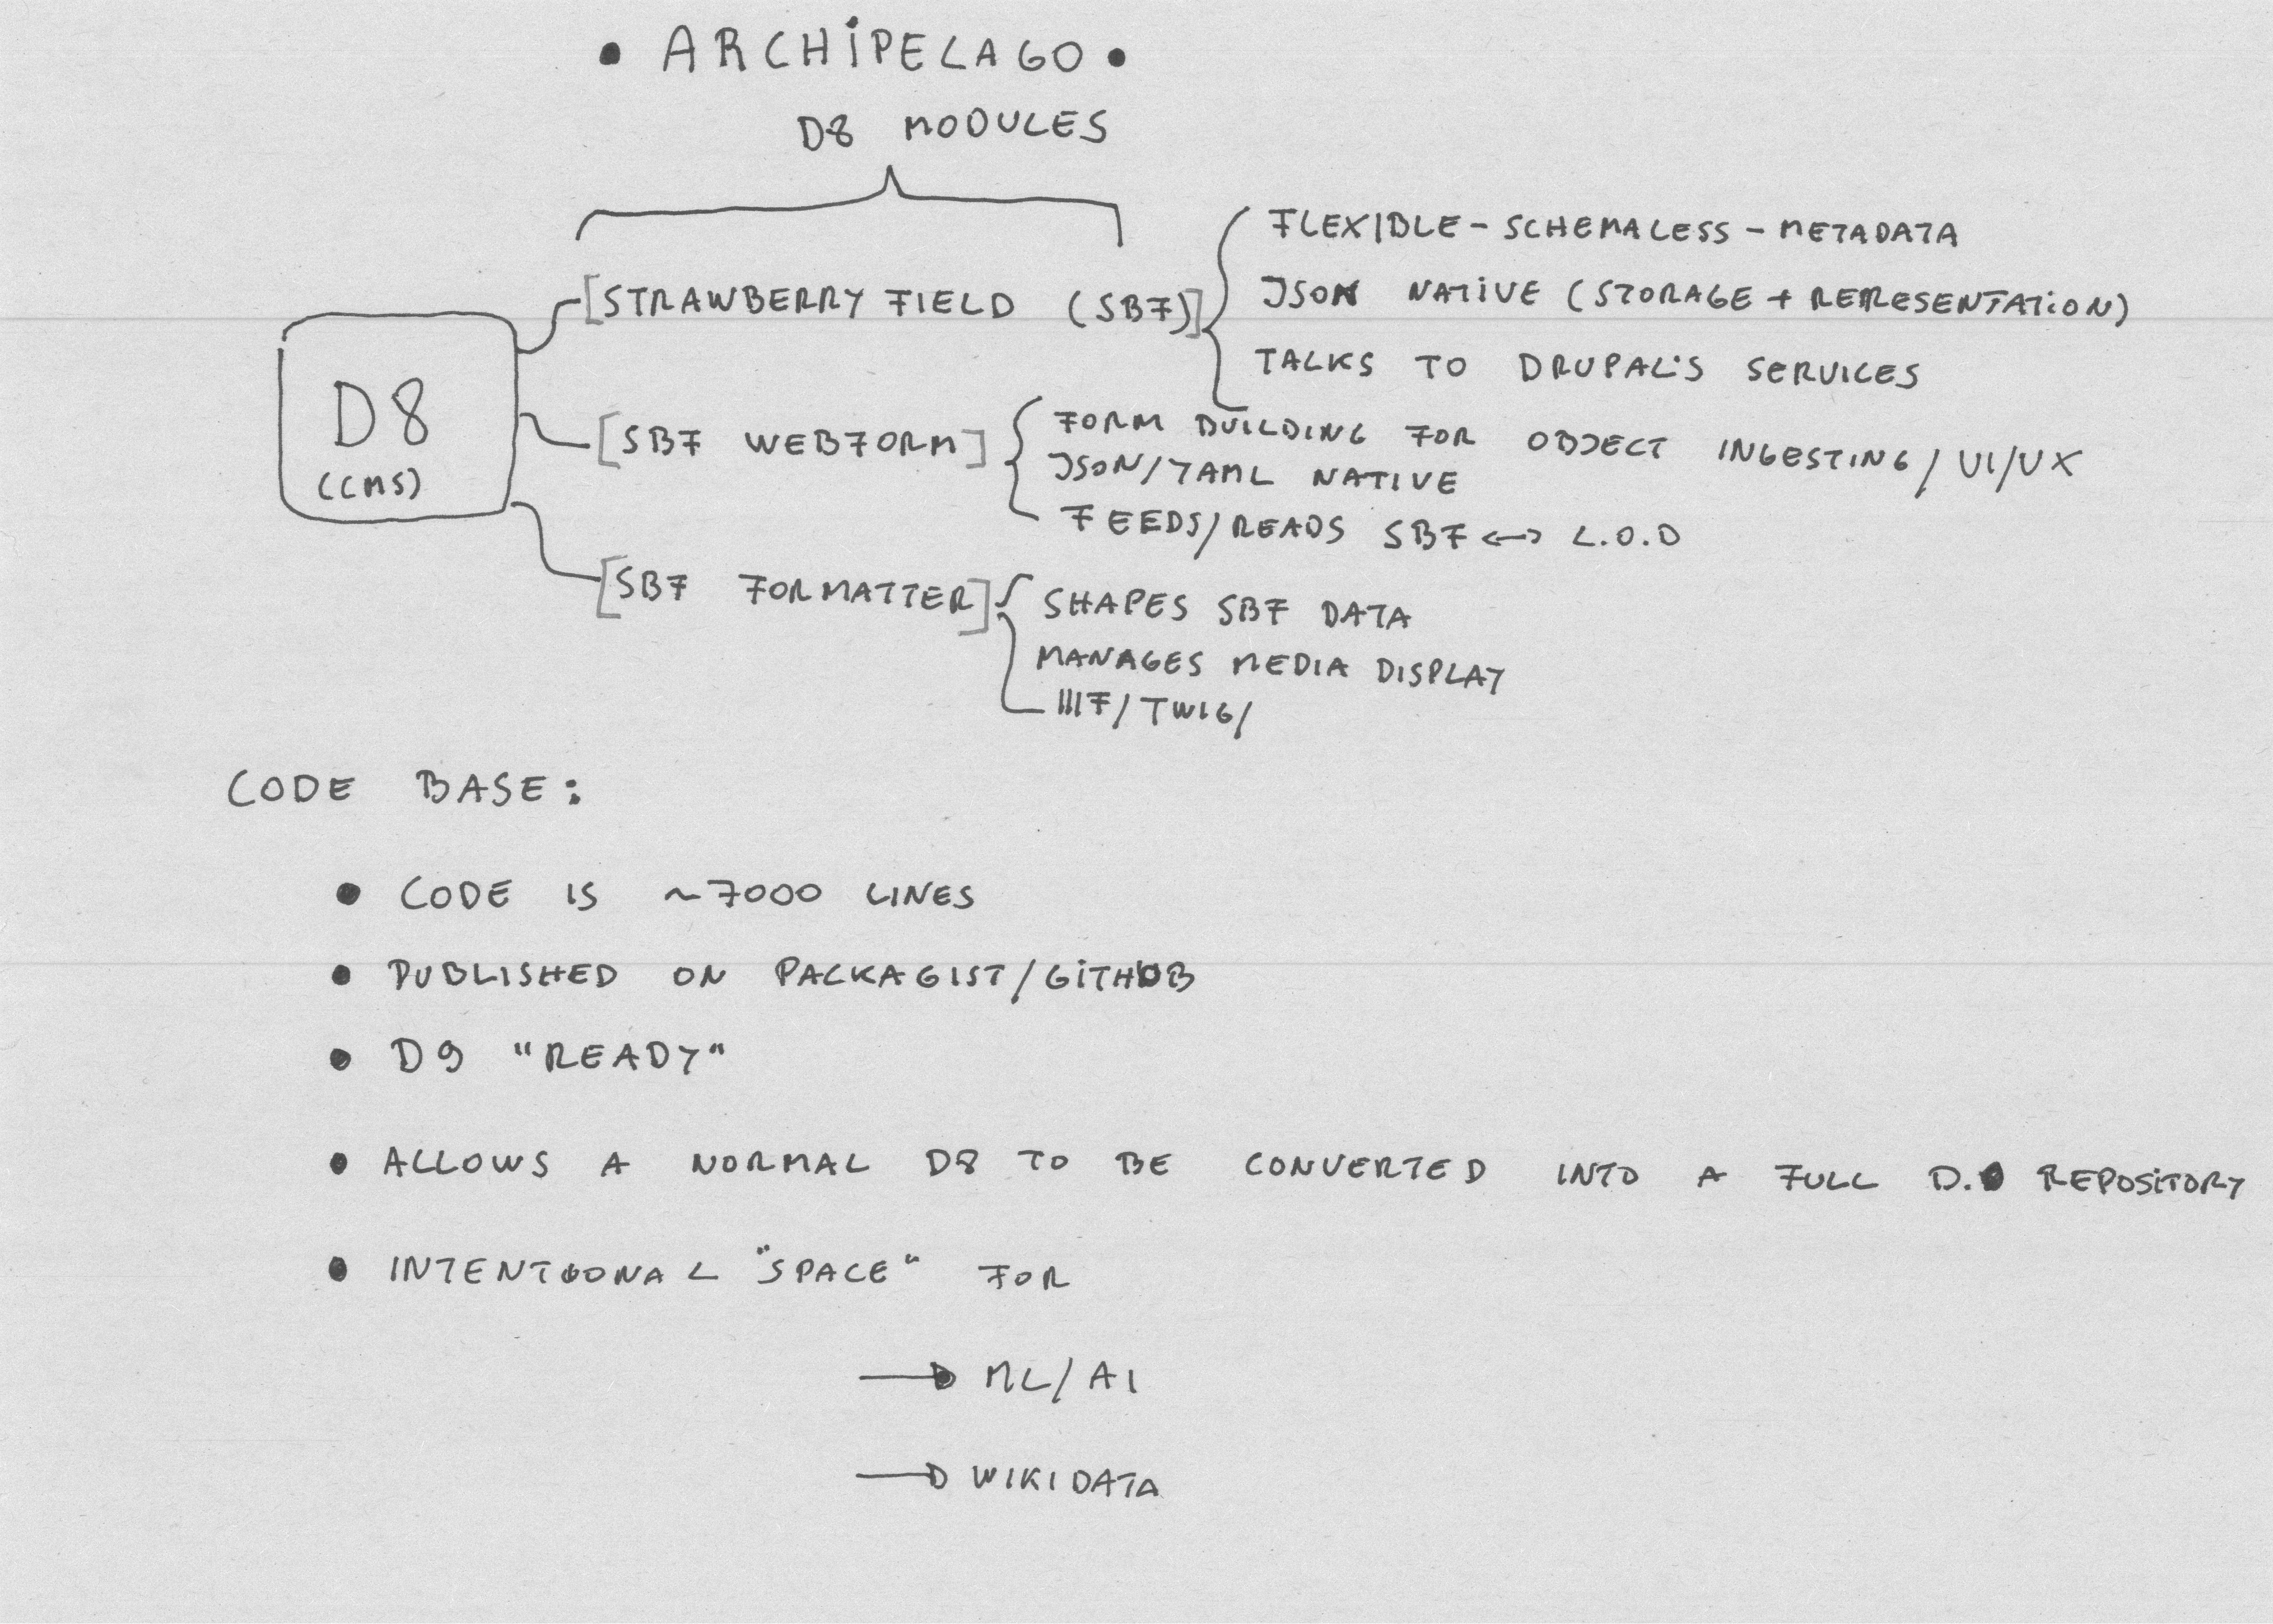 • ARCHIPELAGO •
D8 MODULES
[STRAWBERRY FIELD (SBF)]
FLEXIBLE - SCHEMALESS - METADATA
JSON NATIVE (STORAGE + REPRESENTATION)
TALKS TO DRUPAL'S SERVICES
D8
(CMS)
[SBF WEBFORM]
FORM BUILDING FOR OBJECT INGESTING/UI/UX
JSON/YAML NATIVE
FEEDS/READS SBF <-> L.O.D
[SBF FORMATTER]
SHAPES SBF DATA
MANAGES MEDIA DISPLAY
IIIF/TWIG/
CODE BASE:
• CODE IS ~7000 LINES
• PUBLISHED ON PACKAGIST/GITHUB
• D9 "READY"
• ALLOWS A NORMAL D8 TO BE CONVERTED INTO A FULL D.O REPOSITORY
• INTENTIONAL "SPACE" FOR
→ ML/AI
→ WIKIDATA